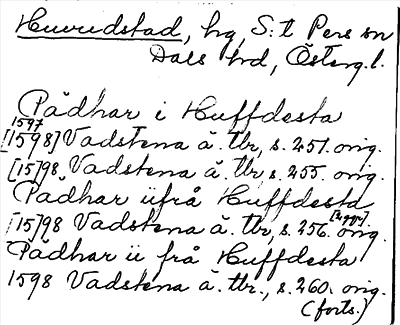 Huvudstad, hg, S:t Pers sn
Dals hd, Österg. l.
Pädhar i Huffdesta
1597
[1598] Vadstena ä. tbr, s. 251. orig.
[15]98 Vadstena ä. tbr, s. 255. orig.
Pädhar üfrå Huffdesta
[15]98 Vadstena ä. tbr, s. 256. orig.
Pädhar ü från Huffdesta
1598 Vadstena ä. tbr., s. 260. orig.
(forts.)